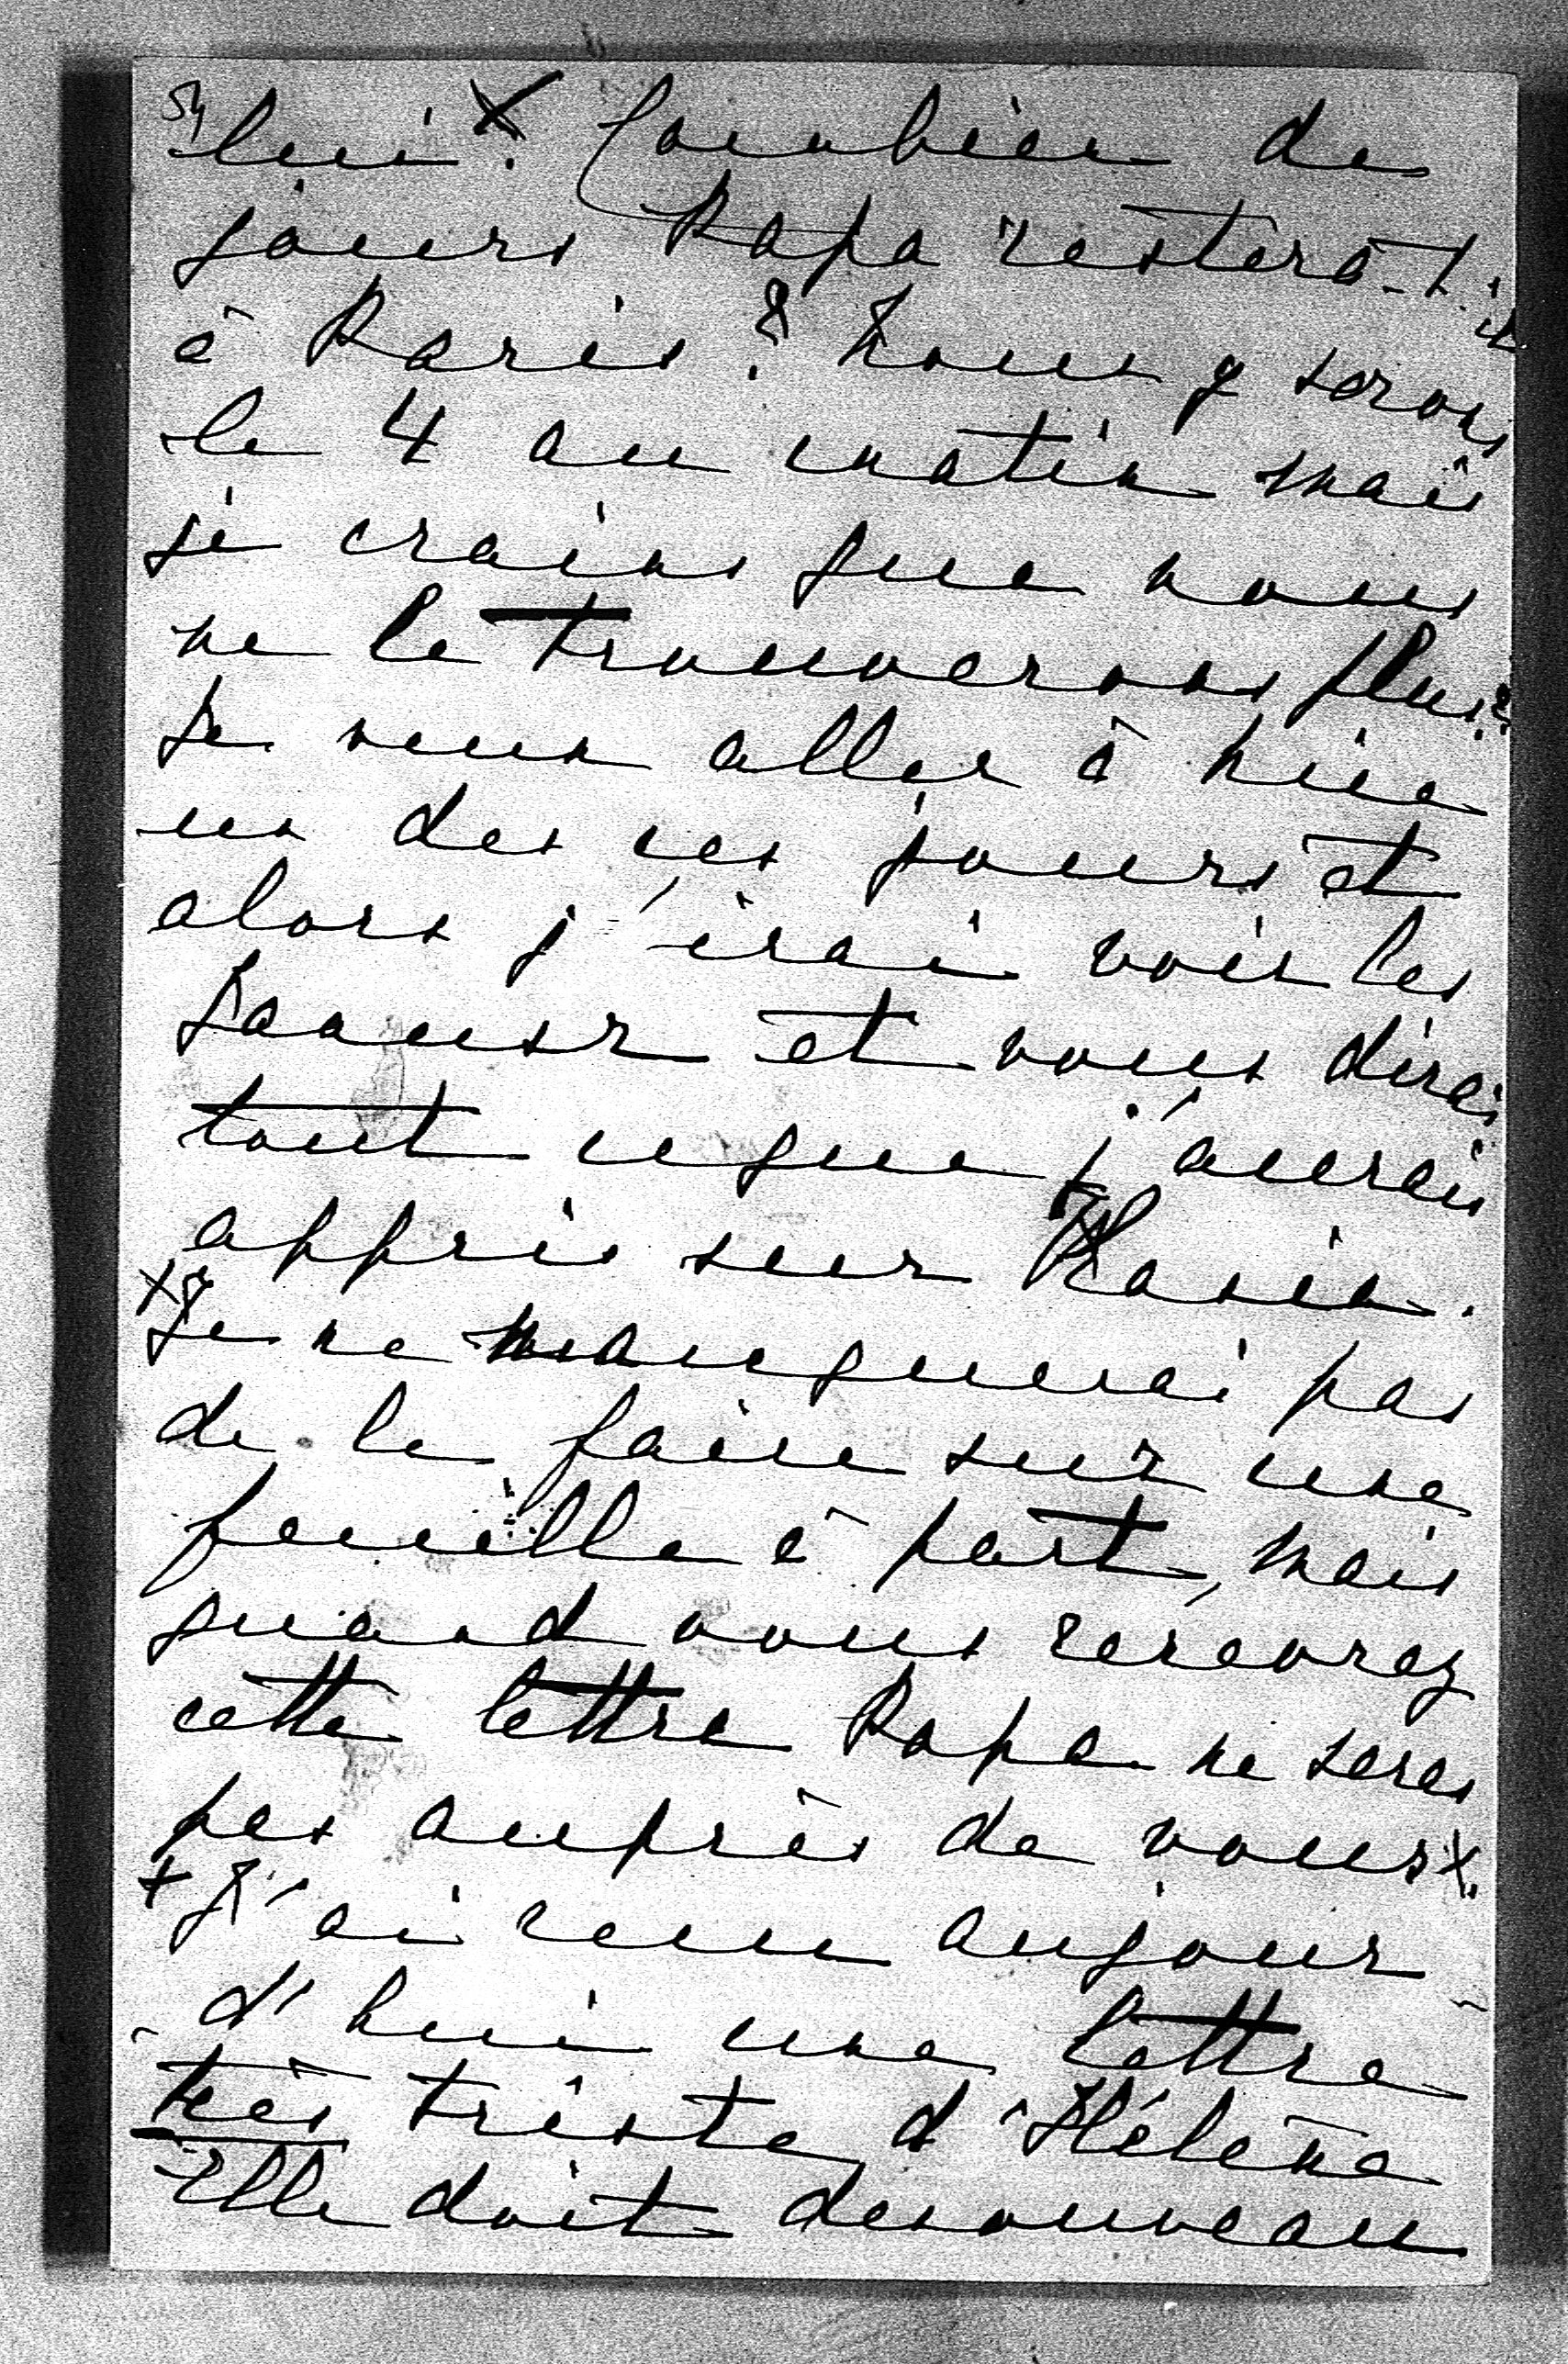 54
lui X. Combien de
jours Papa restera-t-il
à Paris? Nous y serons
le 4 au matin mais
je crains que nous
ne le trouverons plus?
Je veux aller à Nice
un des ces jours et
alors j'irai voir les
et vous dirai
tout ceque j'aurais
appris sur
X Je ne manquerai pas
de le faire sur une
feuille à part, mais
quand vous recevrez
cette lettre Papa ne seras
pas auprès de vous X.
+ J'ai reçu aujour
d'hui une lettre
très triste d'Hélène
Elle doit denouveau